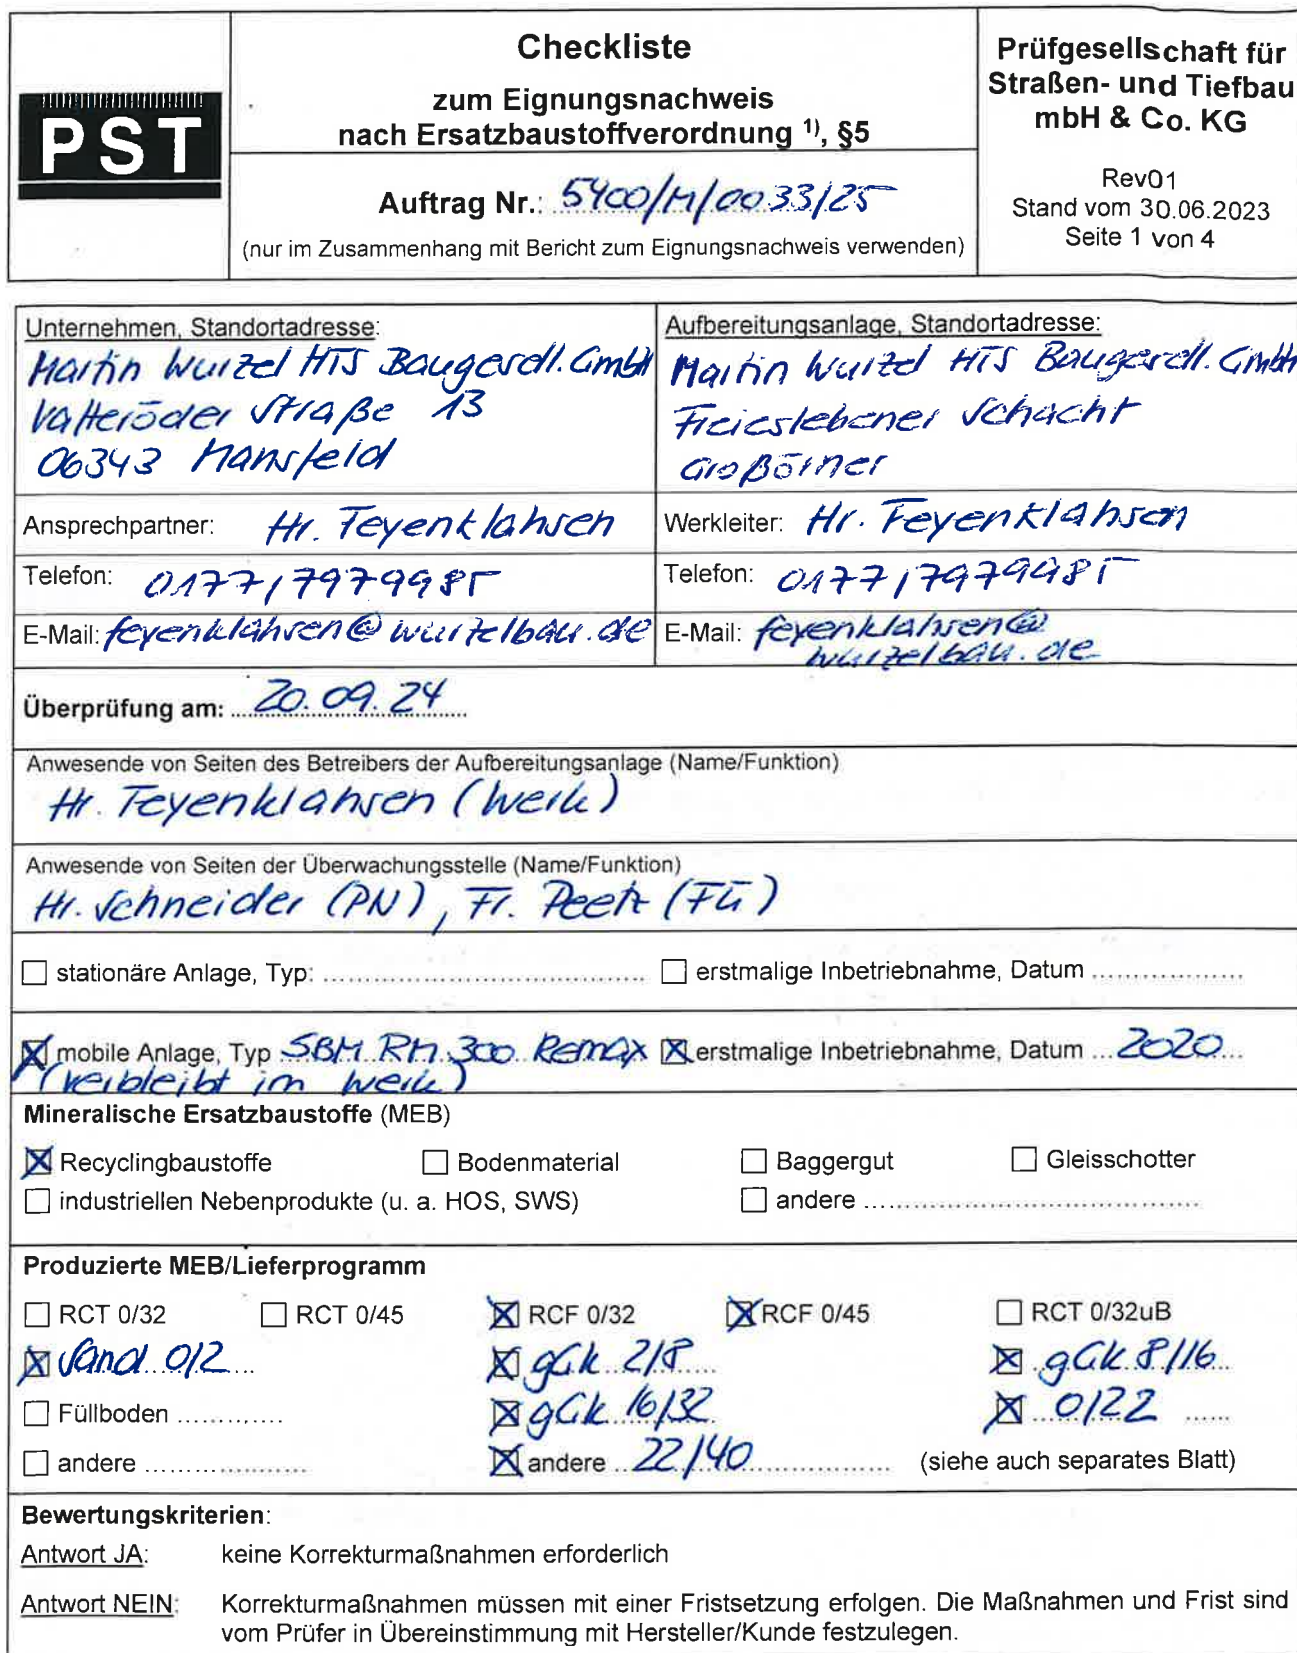 PST
Checkliste
zum Eignungsnachweis
nach Ersatzbaustoffverordnung ¹⁾, §5
Auftrag Nr.: 5400/M/0033/25
(nur im Zusammenhang mit Bericht zum Eignungsnachweis verwenden)
Prüfgesellschaft für
Straßen- und Tiefbau
mbH & Co. KG
Rev01
Stand vom 30.06.2023
Seite 1 von 4
Unternehmen, Standortadresse:
Martin Wurzel HTS Baugesell. GmbH
Vatteröder Straße 13
06343 Mansfeld
Aufbereitungsanlage, Standortadresse:
Martin Wurzel HTS Baugesell. GmbH
Freieslebener Schacht
Großörner
Ansprechpartner: Hr. Feyenklahsen
Werkleiter: Hr. Feyenklahsen
Telefon: 0177/7979985
Telefon: 0177/7979985
E-Mail: feyenklahsen@wurzelbau.de
E-Mail: feyenklahsen@
wurzelbau.de
Überprüfung am: 20.09.24
Anwesende von Seiten des Betreibers der Aufbereitungsanlage (Name/Funktion)
Hr. Feyenklahsen (Werk)
Anwesende von Seiten der Überwachungsstelle (Name/Funktion)
Hr. Schneider (PN), Fr. Peetz (FÜ)
☐ stationäre Anlage, Typ: ........................ ☐ erstmalige Inbetriebnahme, Datum ..................
☒ mobile Anlage, Typ SBM RM 300 Remax ☒ erstmalige Inbetriebnahme, Datum ... 2020 ...
(verbleibt im Werk)
Mineralische Ersatzbaustoffe (MEB)
☒ Recyclingbaustoffe ☐ Bodenmaterial ☐ Baggergut ☐ Gleisschotter
☐ industriellen Nebenprodukte (u. a. HOS, SWS) ☐ andere ........................
Produzierte MEB/Lieferprogramm
☐ RCT 0/32 ☐ RCT 0/45 ☒ RCF 0/32 ☒ RCF 0/45 ☐ RCT 0/32uB
☒ Sand 0/2 ☒ gGk 2/8 ☒ gGk 8/16
☐ Füllboden ............. ☒ gGk 16/32 ☒ 0/22
☐ andere .................... ☒ andere .. 22/40 ............ (siehe auch separates Blatt)
Bewertungskriterien:
Antwort JA: keine Korrekturmaßnahmen erforderlich
Antwort NEIN: Korrekturmaßnahmen müssen mit einer Fristsetzung erfolgen. Die Maßnahmen und Frist sind
vom Prüfer in Übereinstimmung mit Hersteller/Kunde festzulegen.